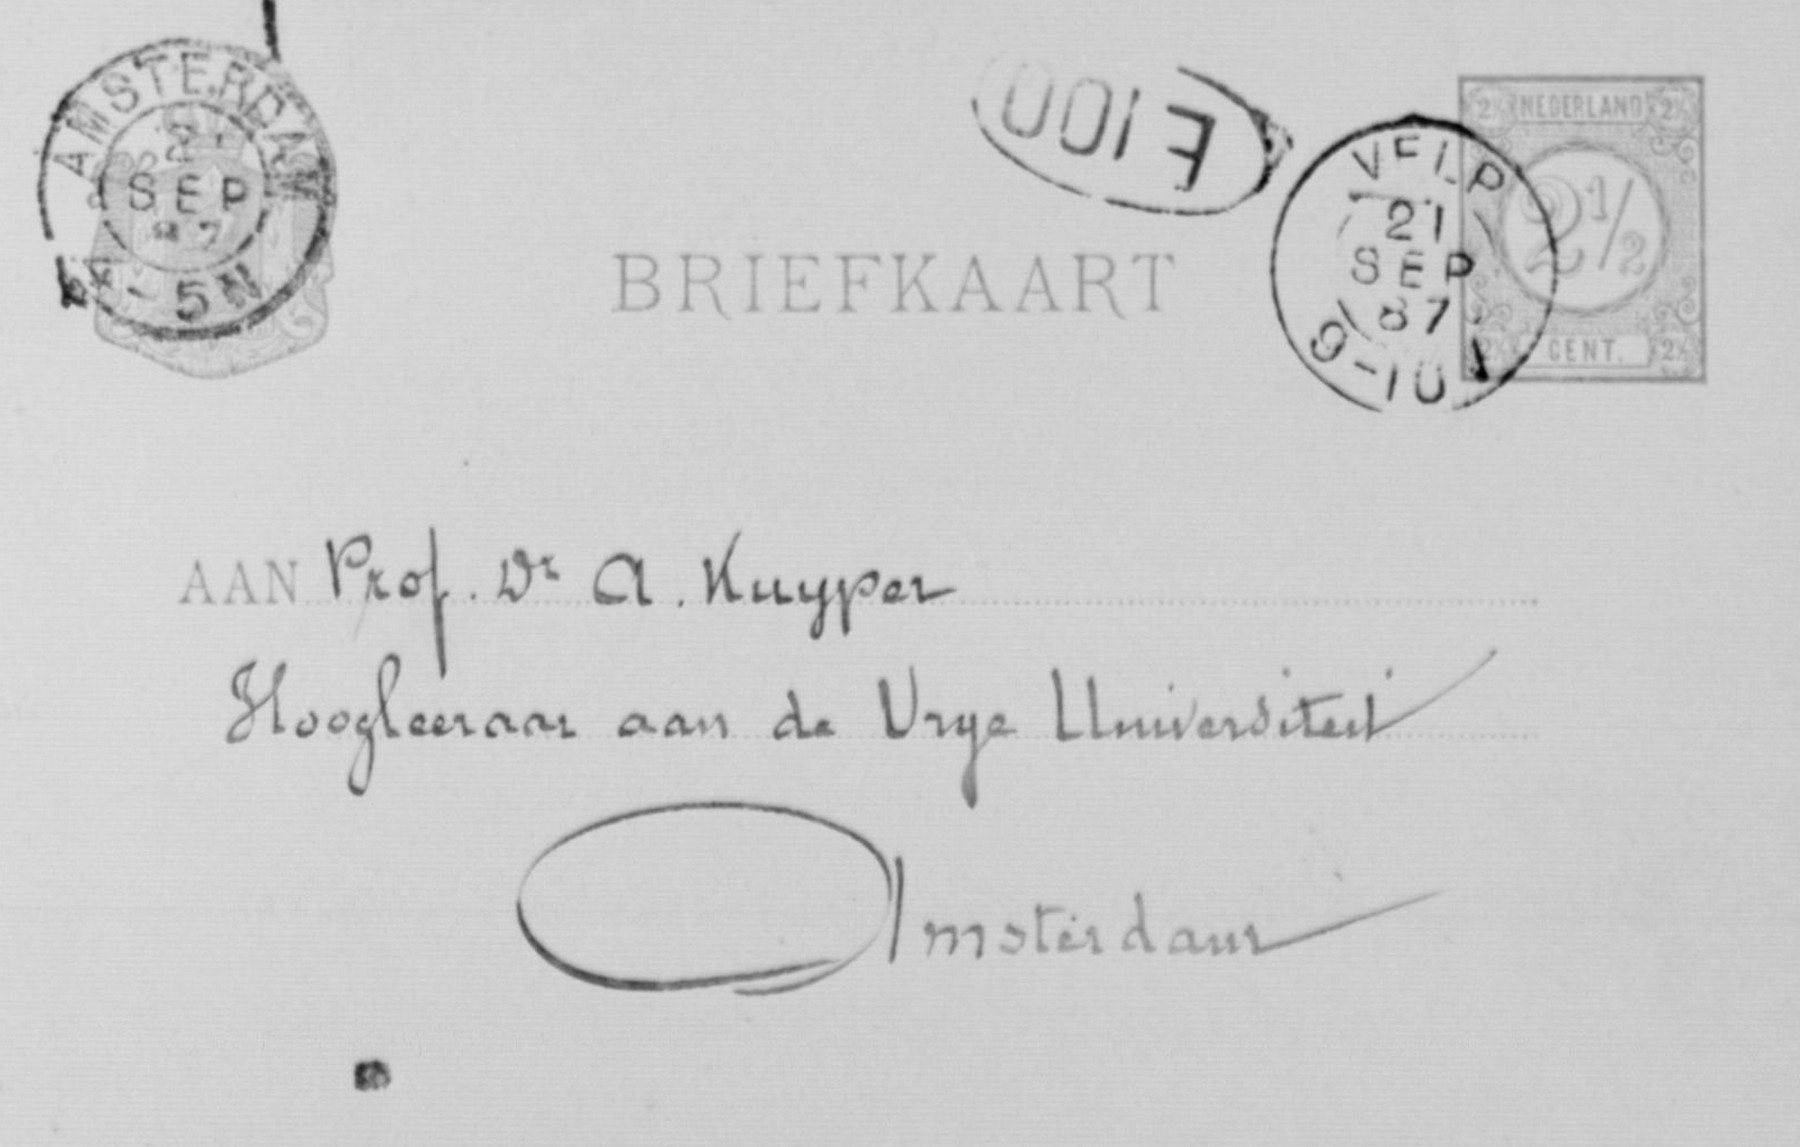 AMSTERDAM
SEP
5N
E 100
VELP
21
SEP
87
9-10
2½ NEDERLAND 2½
2½
2½ CENT. 2½
BRIEFKAART
AAN Prof. Dr A. Kuyper
Hoogleeraar aan de Vrye Universiteit
Amsterdam